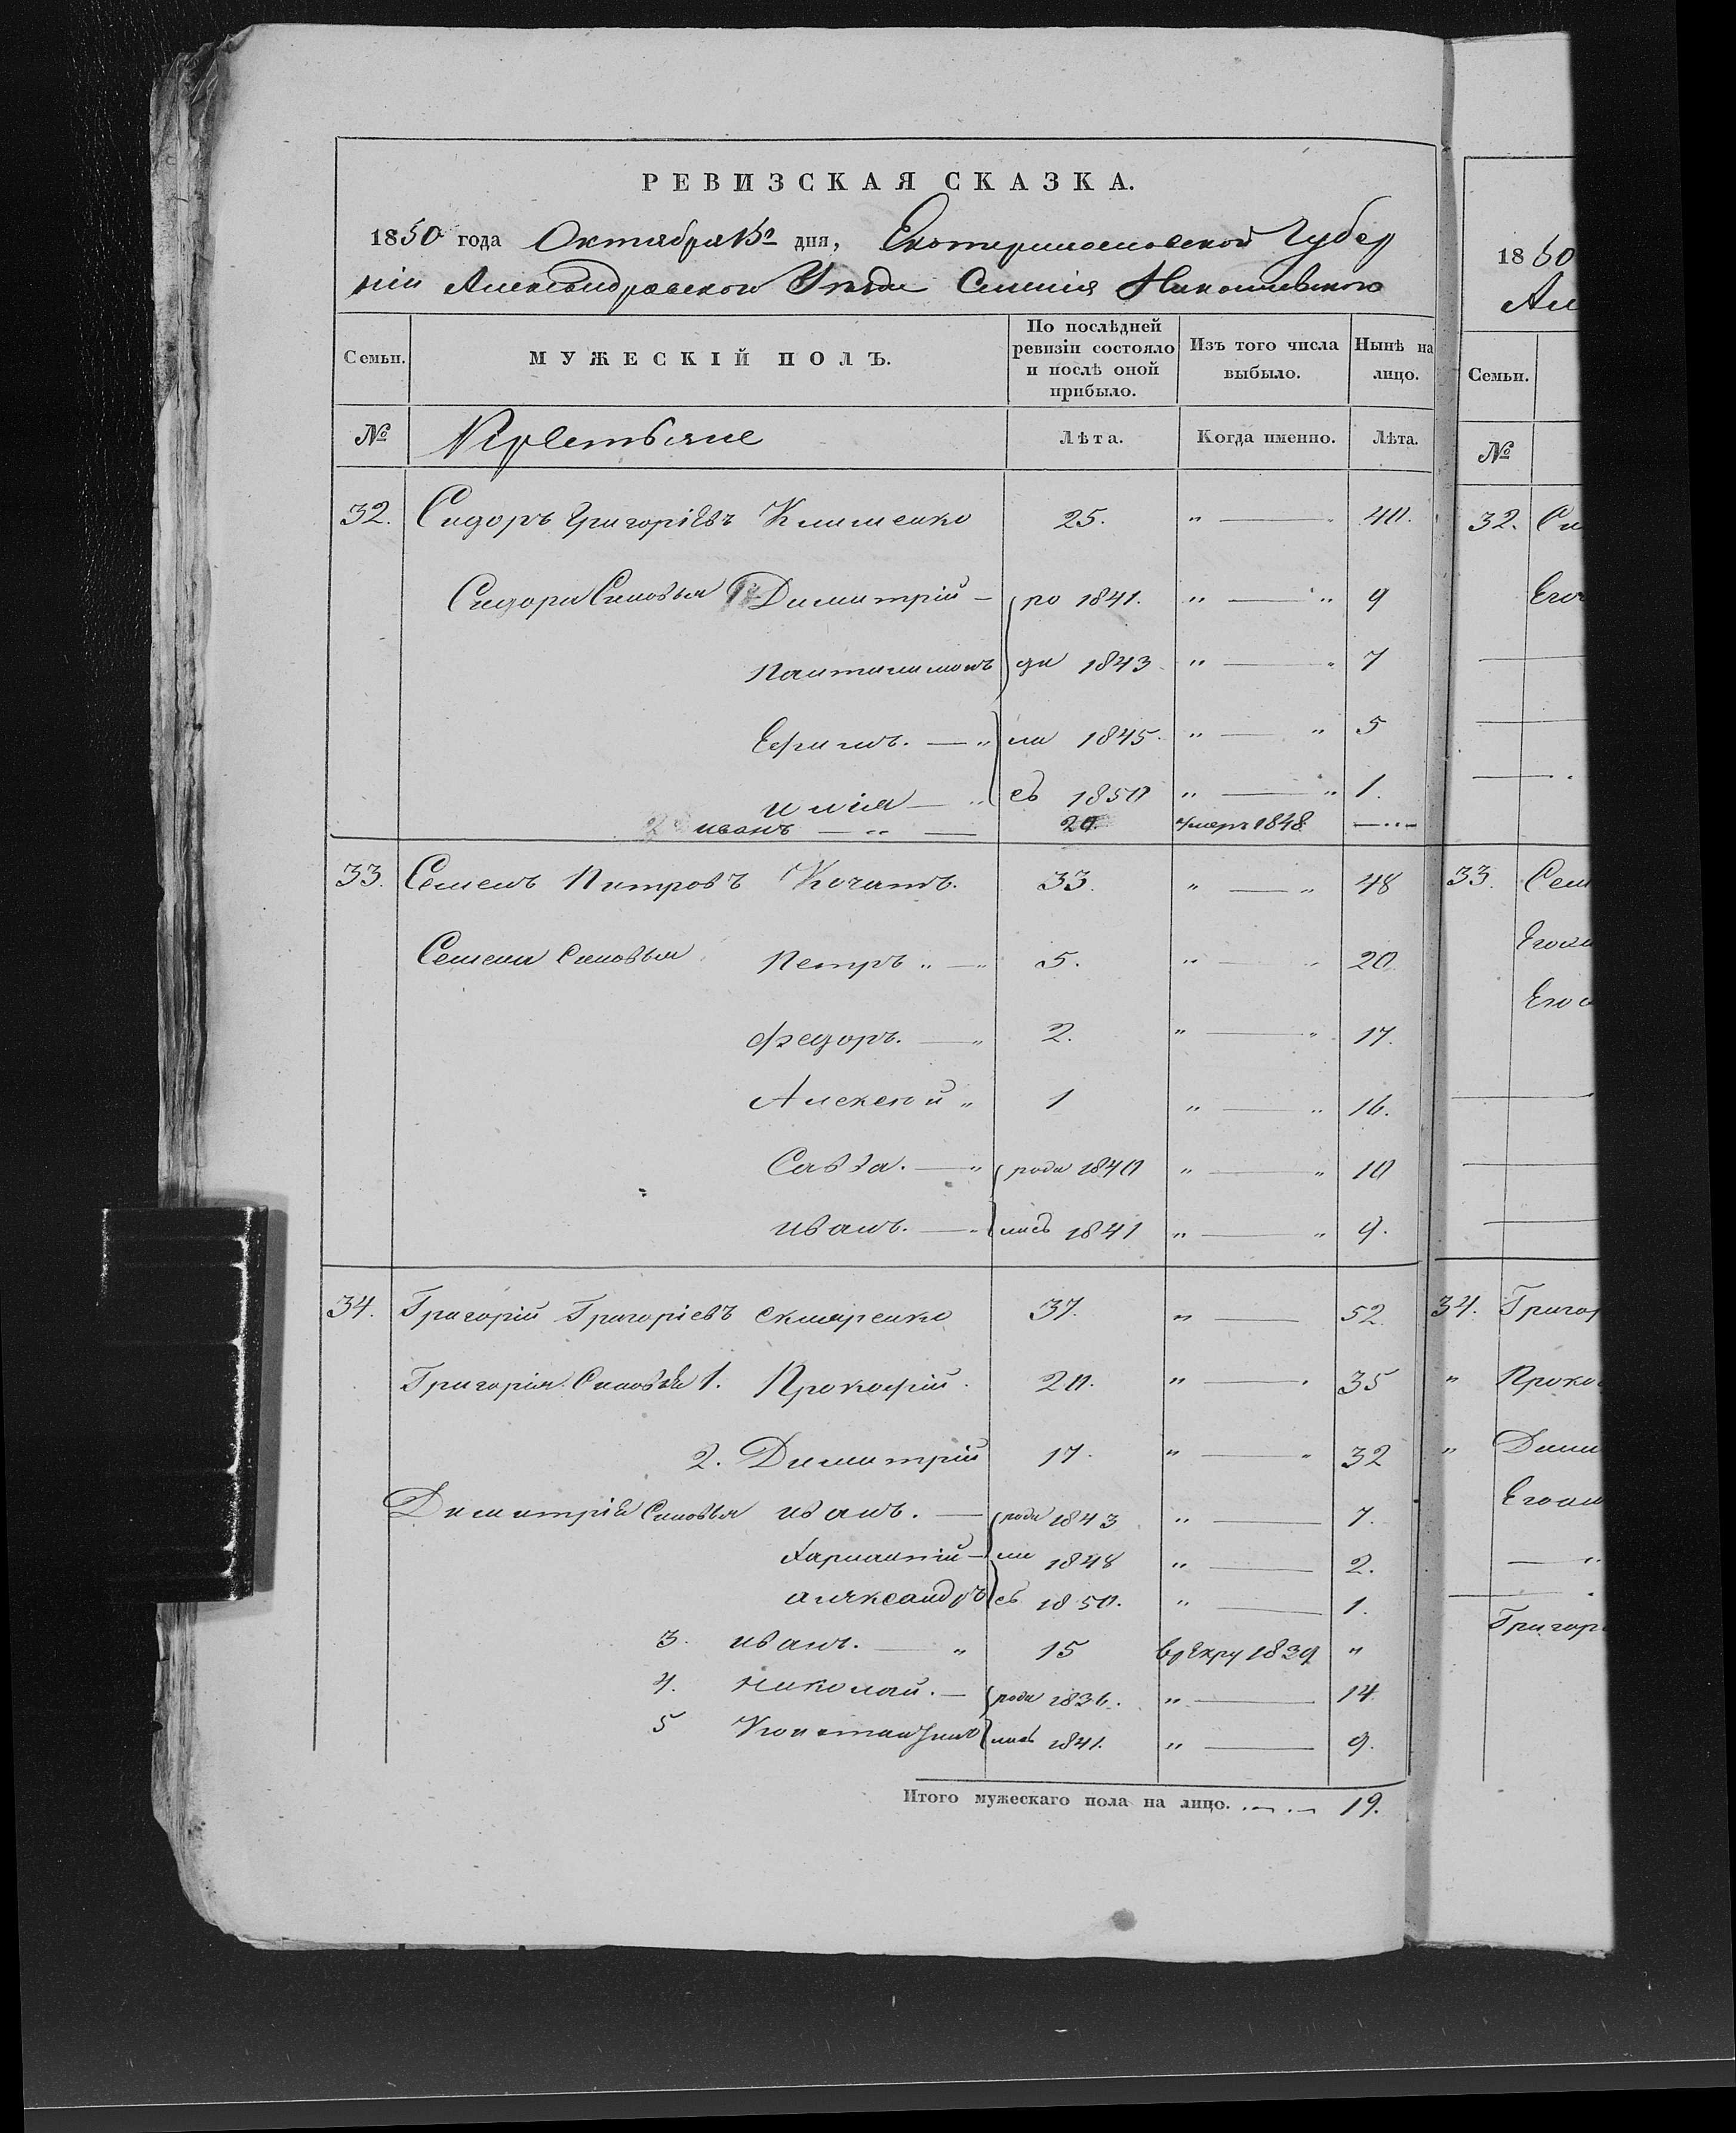 РЕВИЗСКАЯ СКАЗКА.
1850 года Октября 15го дня, Екатеринославской Губер
ніи Александровскаго Уѣзда Селенія Николаевского
Семьи. МУЖЕСКІЙ ПОЛЪ. По послѣдней ревизіи состояло и послѣ оной прибыло. Изъ того числа выбыло. Нынѣ на лицо.
№ Крестьяне Лѣта. Когда именно. Лѣта.
32. Сидоръ Григоріевъ Клименко 25. " — " 40.
Сидора Сыновья 1 Димитрій — ро 1841. " — " 9
Пантилимонъ ди 1843. " — " 7
Ефимъ. — " ли 1845. " — " 5
илія — " сь 1850 " — " 1.
2 иванъ — " — 20. умеръ 1848. —
33. Семенъ Питровъ Кочатъ. 33. " — " 48
Семена Сыновья Петръ " — " 5. " — " 20
Федоръ. — " 2. " — " 17.
Алексѣй " 1 " — " 16.
Савва. — " роди 1840 " — " 10
иванъ. — " лись 1841 " — " 9.
34. Григорій Григоріевъ Скляренко 37. " — 52
Григорія Сыновья 1. Прокофій. 20. " — " 35
2. Димитрій 17. " — " 32
Димитрія Сыновья иванъ. — роди 1843 " — 7.
Харлампій — ли 1848 " — 2.
александръ сь 1850. " — 1.
3. иванъ. — " 15 врекру 1839 "
4. николай. — роди 1836. " — 14.
5 Константинъ лись 1841. " — 9.
Итого мужескаго пола на лицо. 19.
1850
Ал
Семьи.
№
32. Си
Его
33. Сем
Его
Его
34. Григор
" Проко
" Дими
Его
Григор